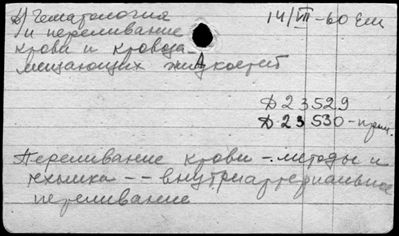 Гематология 14/VII-60 Em
и переливание
крови и кровоза-
мещающих жидкостей
Д 23529
Д 23530-прил.
Переливание крови - методы и
техника -- внутриартериальное
переливание